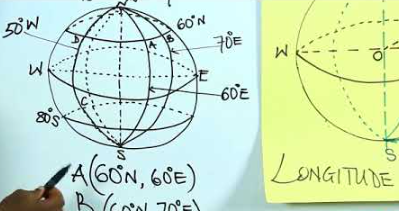 50°W
60°N
70°E
D
A
B
W
E
60°E
C
80°S
S
A(60°N, 60°E)
B (60°N, 70°E)
W
O
S
LONGITUDE